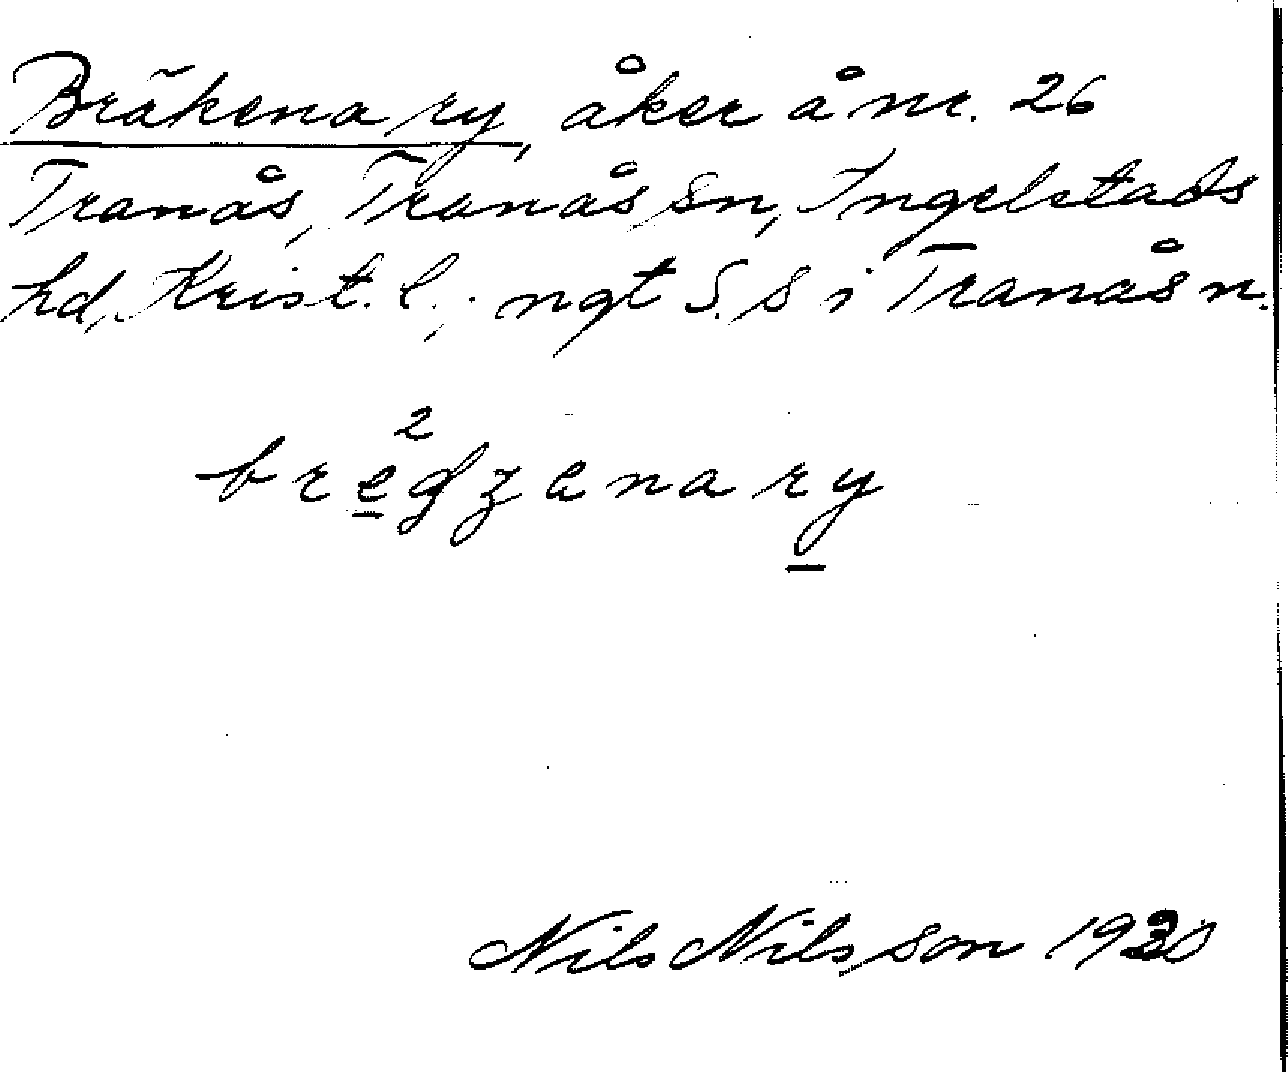 Bräkena ry, åker å nr. 26
Tranås, Tranås sn, Ingelstads
hd, Krist. l.; ngt S. s i Tranås n.
2
bregzenary
Nils Nilsson 1930